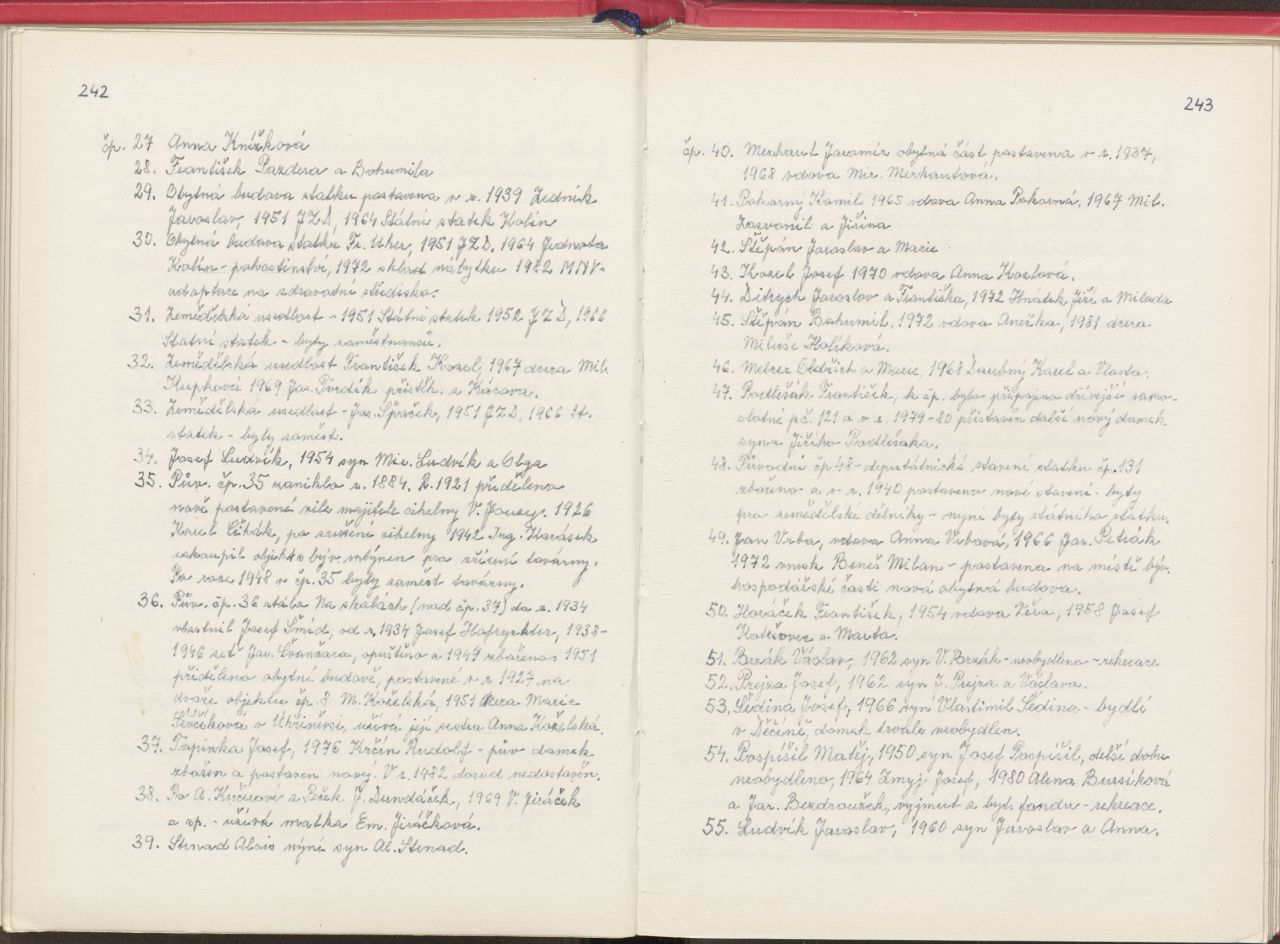 242
čp. 27 Anna Knížková
28. František Pazdera a Bohumila
29. Obytná budova statku postavena v r. 1939 Zedník
Jaroslav, 1951 JZD, 1964 Státní statek Kolín
30. Obytná budova statku Fr. Uher, 1951 JZD, 1964 Jednota
Kolín - pohostinství, 1972 sklad nábytku 1982 MNV-
adaptace na zdravotní středisko.
31. Zemědělská usedlost - 1951 Státní statek 1952 JZD, 1966
Statní statek - byty zaměstnanců.
32. Zemědělská usedlost František Kozel, 1967 dcera Mil.
Kupková 1969 Jar. Tvrdík přistěh. z Kácova.
33. Zemědělská usedlost - Jos. Spaček, 1951 JZD, 1966 St.
statek - byty zaměst.
34. Josef Ludvík, 1954 syn Mir. Ludvík a Olga
35. Pův. čp. 35 zaniklo r. 1884. R. 1921 přiděleno
nově postavené vile majitele cihelny V. 1926
Karel Čihák, po zrušení cihelny 1942 Ing. Karásek
zakoupil objekt s býv. mlýnem pro zřízení továrny.
Po roce 1948 v čp. 35 byty zaměst. továrny.
36. Pův. čp. 36 stálo Na skalách (nad čp. 37) do r. 1934
vlastnil Josef Šmíd, od r. 1934 Josef 1938-
1946 zeť Jar. Švančara, opuštěno a 1949 zbořeno. 1951
přiděleno obytné budově, postavené v r. 1927 na
dvoře objektu čp. 8 M. Kořelská, 1951 dcera Marie
Ševčíková v Uhříněvsi, užívá její sestra Anna Kořelská.
37. Ťapinka Josef, 1976 Krčín Rudolf - pův. domek
zbořen a postaven nový. V r. 1982 dosud nedostavěn.
38. Po A. Kučerové z Peček J. Dundáček, 1969 V. Jiráček
a sp. - užívá matka Em. Jiráčková.
39. Strnad Alois nyní syn Al. Strnad.
243
čp. 40. Merhaut Jaromír obytná část postavena v r. 1937,
1968 vdova Mir. Merhautová.
41. Pokorný Kamil 1965 vdova Anna Pokorná, 1967 Mil.
Zazvonil a Jiřina
42. Štěpán Jaroslav a Marie
43. Kozel Josef 1970 vdova Anna Kozlová.
44. Ditrych Jaroslav a Františka, 1972 Hnátek Jiří a Milada
45. Štěpán Bohumil, 1972 vdova Anežka, 1981 dcera
Miluše Holíková.
46. Melcer Oldřich a Marie, 1968 Doubný Karel a Vlasta.
47. Podlešák František, k čp. bylo připojeno dřívější samo-
statné pč. 121 a v r. 1979-80 přistavěn další nový domek
syna Jiřího Podlešáka.
48. Původní čp 48 - deputátnické stavení statku čp. 131
zbořeno a v r. 1940 postaveno nové stavení - byty
pro zemědělské dělníky - nyní byty státního statku.
49. Jan Vrba, vdova Anna Vrbová, 1966 Jar. Petrák
1972 vnuk Beneš Milan - postavena na místě býv.
hospodářské části nová obytná budova.
50. Horáček František, 1954 vdova Věra, 1958 Josef
Kotěšovec a Marta.
51. Brzák Václav, 1962 syn V. Brzák - neobydleno - rekreace
52. Prejza Josef, 1962 syn J. Prejza a Václava.
53. Šedina Josef, 1966 syn Vlastimil Šedina - bydlí
v Děčíně, domek trvale neobydlen.
54. Pospíšil Matěj, 1950 syn Josef Pospíšil, delší dobu
neobydleno, 1964 Zmyj Josef, 1980 Alena Bursíková
a Jar. Bezdroužek, vyjmut z byt. fondu - rekreace.
55. Ludvík Jaroslav, 1960 syn Jaroslav a Anna.